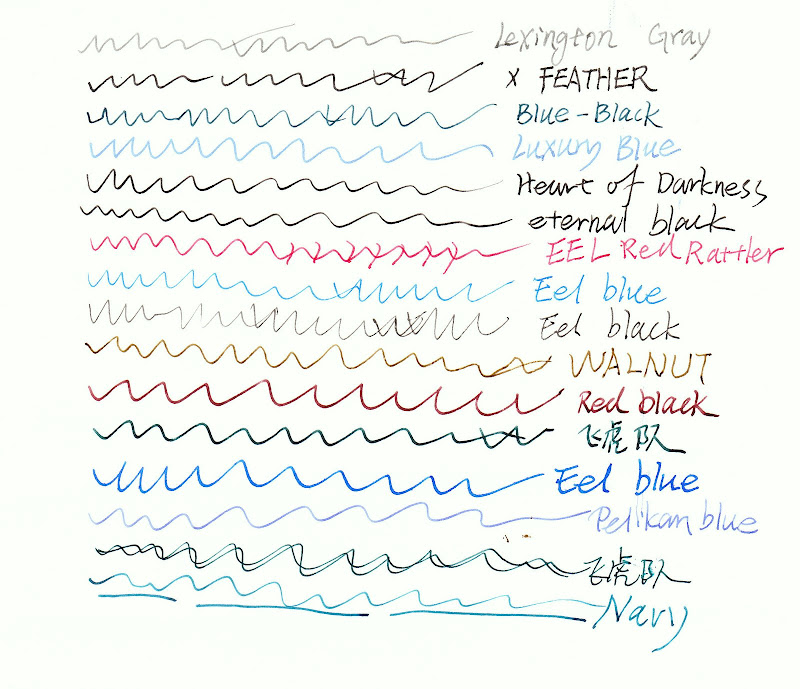 Lexington Gray
X FEATHER
Blue-Black
Luxury Blue
Heart of Darkness
eternal black
EEL Red Rattler
Eel blue
Eel black
WALNUT
Red black
飞虎队
Eel blue
Pelikan blue
飞虎队
Navy